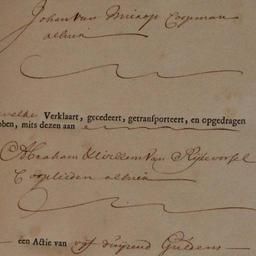 Johan van Mierop Coopman
alhier
welke Verklaart, gecedeert, getransporteert, en opgedragen
bben, mits dezen aan
Abraham & Willem Van Rijckevorsel
Cooplieden alhier
een Actie van vijf duijzend Guldens